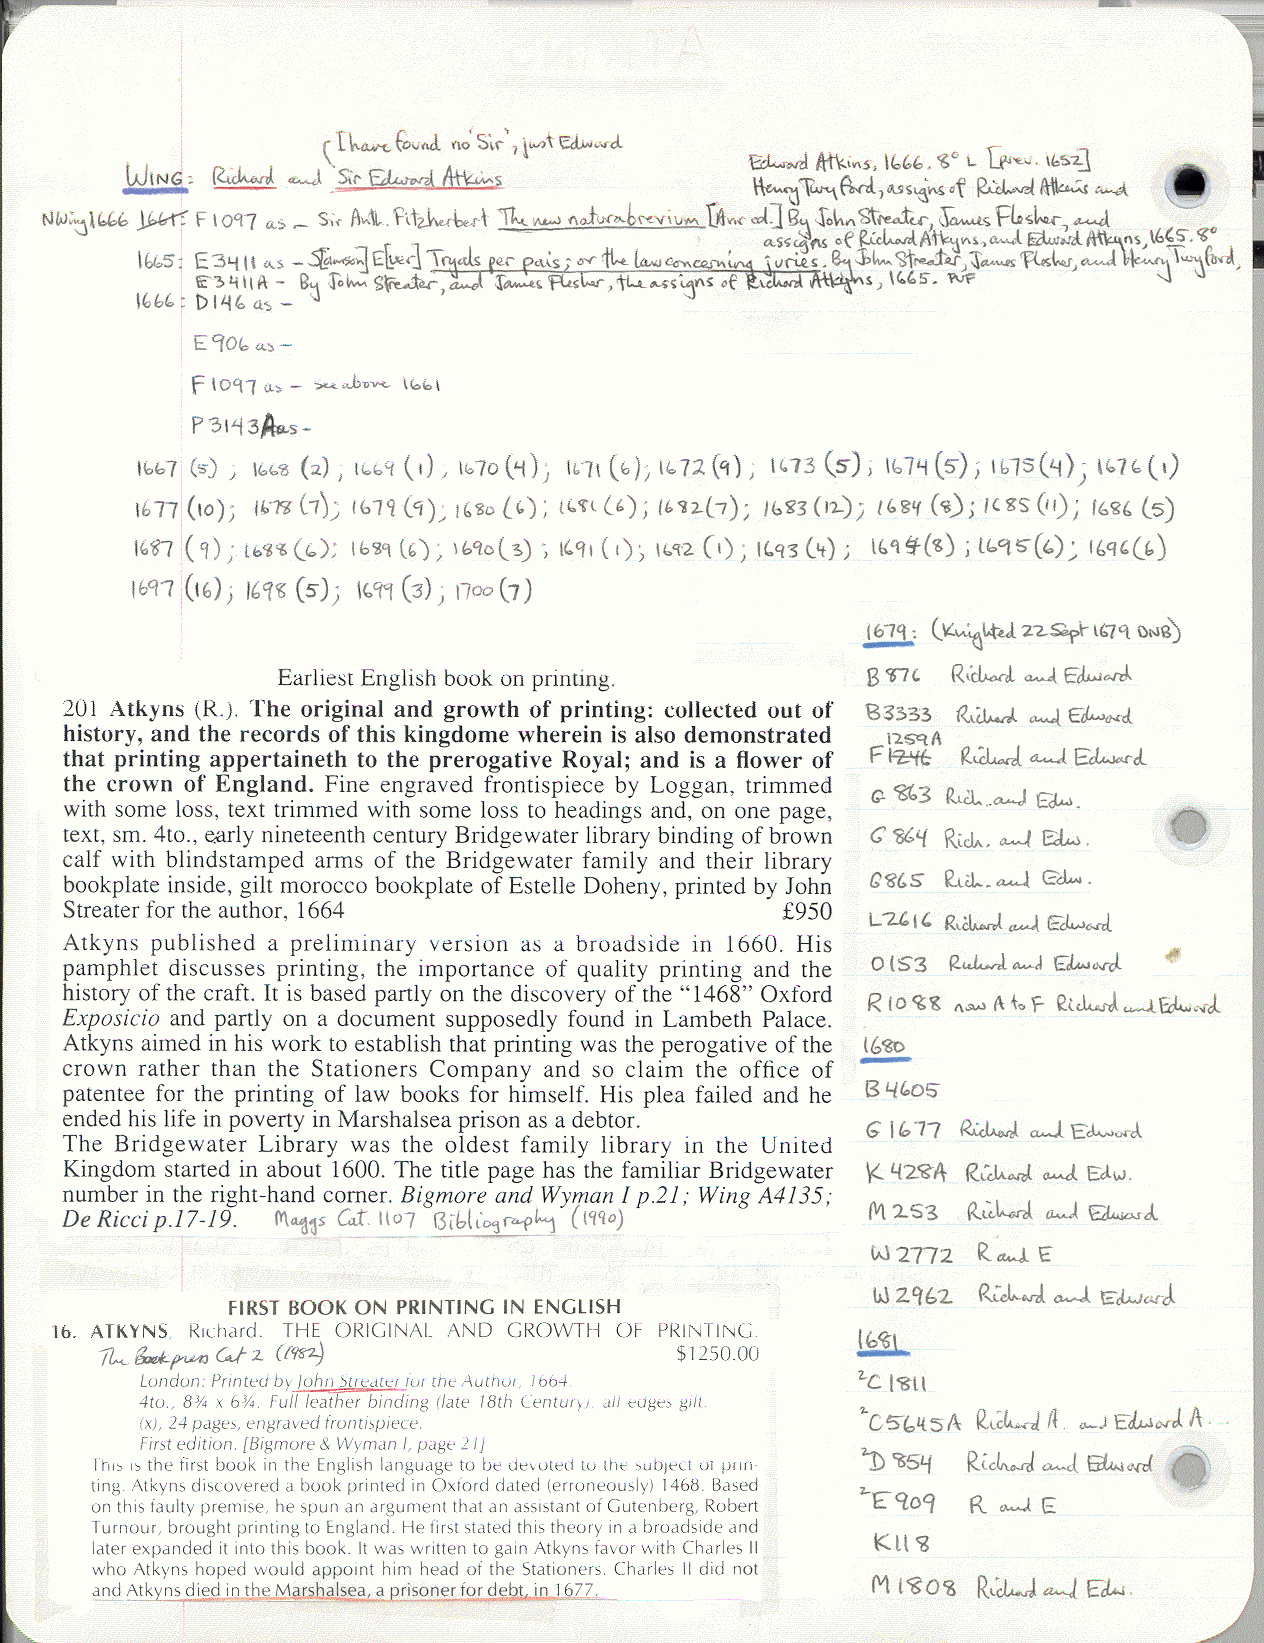 I have found no 'Sir', just Edward
WING: Richard and Sir Edward Atkins
Edward Atkins, 1666. 8° L [Prev. 1652]
Henry Twyford, assigns of Richard Atkins and
NWing 1666 1661: F1097 as – Sir Anth. Fitzherbert The new natura brevium [Anr ed.] By John Streater, James Flesher, and
assigns of Richard Atkyns, and Edward Atkyns, 1665. 8°
1665: E3411 as – S[amson] E[ver] Tryals per pais; or the law concerning juries. By John Streater, James Flesher, and Henry Twyford,
E3411A – By John Streater, and James Flesher, the assigns of Richard Atkyns, 1665. PUF
1666: D146 as –
E906 as –
F1097 as – see above 1661
P3143A as –
1667 (5); 1668 (2); 1669 (1), 1670 (4); 1671 (6); 1672 (9); 1673 (5); 1674 (5); 1675 (4); 1676 (1)
1677 (10); 1678 (7); 1679 (9); 1680 (6); 1681 (6); 1682 (7); 1683 (12); 1684 (8); 1685 (11); 1686 (5)
1687 (9); 1688 (6); 1689 (6); 1690 (3); 1691 (1); 1692 (1); 1693 (4); 1694 (8); 1695 (6); 1696 (6)
1697 (16); 1698 (5); 1699 (3); 1700 (7)
Earliest English book on printing.
201 Atkyns (R.). The original and growth of printing: collected out of
history, and the records of this kingdome wherein is also demonstrated
that printing appertaineth to the prerogative Royal; and is a flower of
the crown of England. Fine engraved frontispiece by Loggan, trimmed
with some loss, text trimmed with some loss to headings and, on one page,
text, sm. 4to., early nineteenth century Bridgewater library binding of brown
calf with blindstamped arms of the Bridgewater family and their library
bookplate inside, gilt morocco bookplate of Estelle Doheny, printed by John
Streater for the author, 1664 £950
Atkyns published a preliminary version as a broadside in 1660. His
pamphlet discusses printing, the importance of quality printing and the
history of the craft. It is based partly on the discovery of the “1468” Oxford
Exposicio and partly on a document supposedly found in Lambeth Palace.
Atkyns aimed in his work to establish that printing was the perogative of the
crown rather than the Stationers Company and so claim the office of
patentee for the printing of law books for himself. His plea failed and he
ended his life in poverty in Marshalsea prison as a debtor.
The Bridgewater Library was the oldest family library in the United
Kingdom started in about 1600. The title page has the familiar Bridgewater
number in the right-hand corner. Bigmore and Wyman I p.21; Wing A4135;
De Ricci p.17-19. Maggs Cat. 1107 Bibliography (1990)
FIRST BOOK ON PRINTING IN ENGLISH
16. ATKYNS, Richard. THE ORIGINAL AND GROWTH OF PRINTING.
The Bookpress Cat 2 (1982) $1250.00
London: Printed by John Streater for the Author, 1664.
4to., 8¾ x 6¾. Full leather binding (late 18th Century), all edges gilt.
(x), 24 pages, engraved frontispiece.
First edition. [Bigmore & Wyman I, page 21]
This is the first book in the English language to be devoted to the subject of prin-
ting. Atkyns discovered a book printed in Oxford dated (erroneously) 1468. Based
on this faulty premise, he spun an argument that an assistant of Gutenberg, Robert
Turnour, brought printing to England. He first stated this theory in a broadside and
later expanded it into this book. It was written to gain Atkyns favor with Charles II
who Atkyns hoped would appoint him head of the Stationers. Charles II did not
and Atkyns died in the Marshalsea, a prisoner for debt, in 1677.
1679: (Knighted 22 Sept 1679 DNB)
B 876 Richard and Edward
B3333 Richard and Edward
1259A
F1246 Richard and Edward
G 863 Rich. and Edw.
G 864 Rich. and Edw.
G865 Rich. and Edw.
L2616 Richard and Edward
O153 Richard and Edward
R1088 now A to F Richard and Edward
1680
B4605
G1677 Richard and Edward
K 428A Richard and Edw.
M253 Richard and Edward
W2772 R and E
W2962 Richard and Edward
1681
²C1811
²C5645A Richard A. and Edward A...
²D854 Richard and Edward
²E909 R and E
K118
M1808 Richard and Edw.